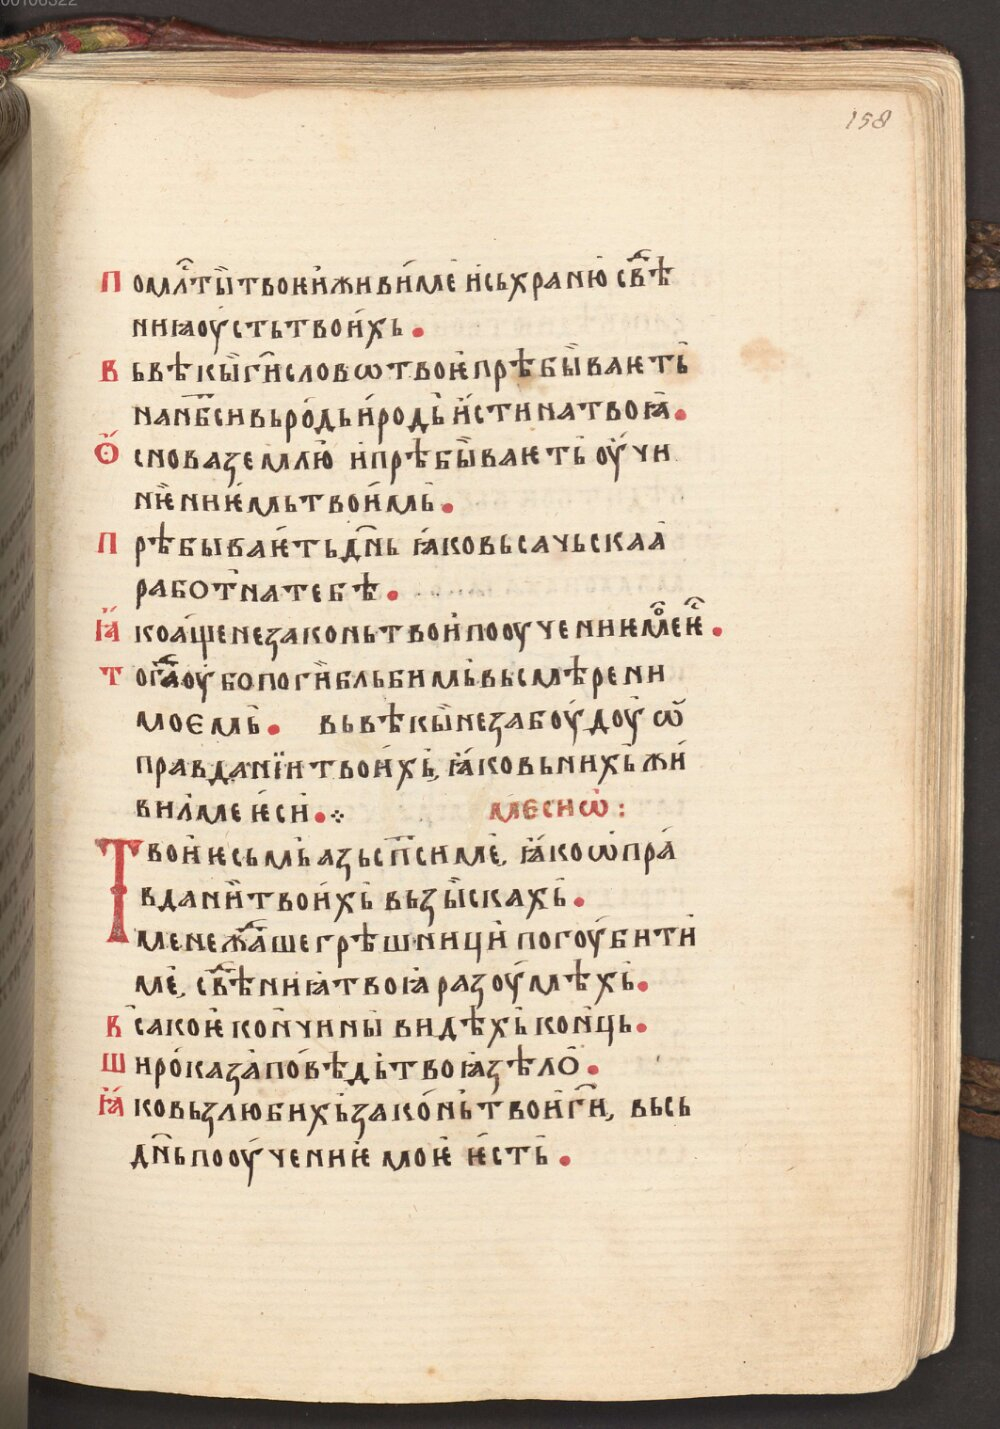 00106322
158
По млⷭ҇ти твоѥи живи ме и сьхраню свⷣѣ
ниꙗ оусть твоихь.
Вь вѣкы г҃и слово твоѥ прѣбываѥть
на нб҃си вь родь и родь истина твоꙗ.
Ѻснова землю и прѣбываѥть оучи
нѥниѥмь твоимь.
Прѣбываѥть дн҃ь ꙗко вьсачьскаа
работна тебѣ.
Ꙗко аще не законь твои пооучениѥ моⷷ ѥⷭ҇.
Тогⷣа оубо погибль бимь вь смѣрени
моѥмь. вь вѣкы не забоудоу ѿ
правданїи твоихь, ꙗко вь нихь жи
виль ме ѥси. ме сиѡ:
Твои ѥсьмь азь сп҃си ме, ꙗко ѡпра
вдани твоихь вьзыскахь.
мене жⷣаше грѣшници погоубити
ме, свⷣѣниꙗ твоꙗ разоумѣхь.
Всакоѥ кончины видѣхь конць.
Широка заповѣдь твоꙗ зѣло.
Ꙗко вьзлюбихь законь твои г҃и, вьсь
дн҃ь пооучениѥ моѥ ѥсть.